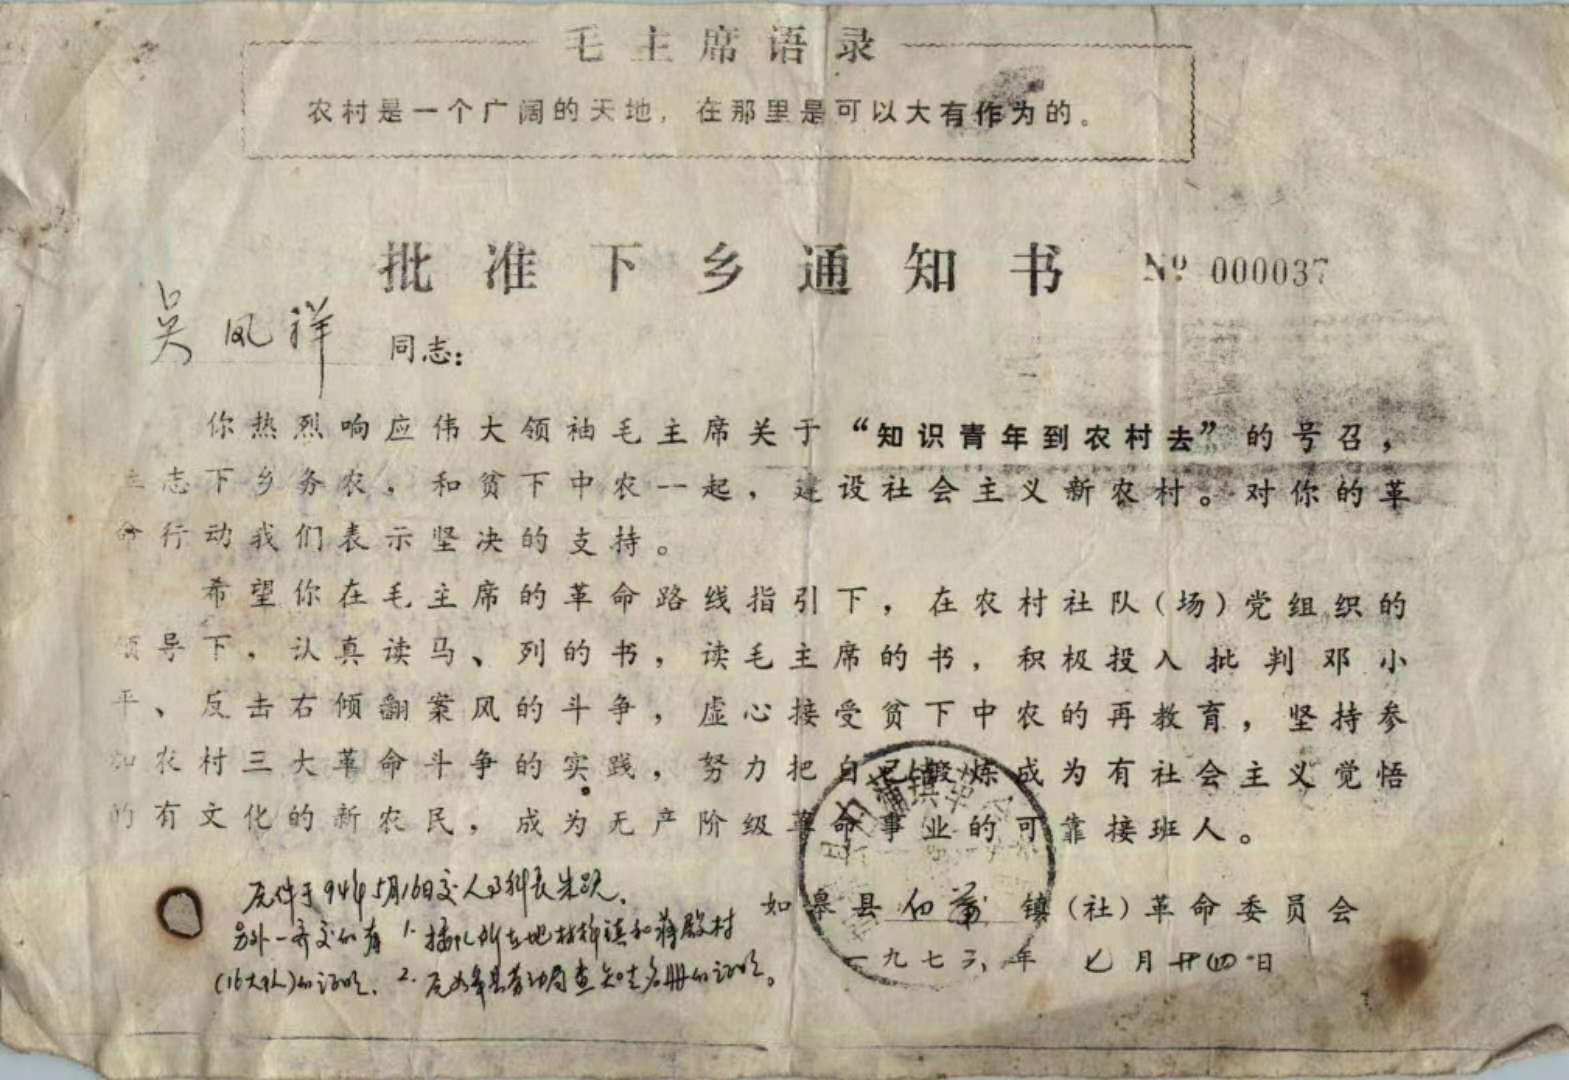 毛主席语录
农村是一个广阔的天地，在那里是可以大有作为的。
批准下乡通知书 № 000037
吴凤祥 同志：
你热烈响应伟大领袖毛主席关于“知识青年到农村去”的号召，
立志下乡务农，和贫下中农一起，建设社会主义新农村。对你的革
命行动我们表示坚决的支持。
希望你在毛主席的革命路线指引下，在农村社队（场）党组织的
领导下，认真读马、列的书，读毛主席的书，积极投入批判邓小
平、反击右倾翻案风的斗争，虚心接受贫下中农的再教育，坚持参
加农村三大革命斗争的实践，努力把自己锻炼成为有社会主义觉悟
的有文化的新农民，成为无产阶级革命事业的可靠接班人。
如皋县白蒲镇（社）革命委员会
一九七六年 七月廿四日
原件于94年5月16日交人事科长朱跃。
另外一齐交的有 1. 插队所在地林梓镇和蒋殿村
（16大队）的证明、2. 原如皋县劳动局查知青名册的证明。